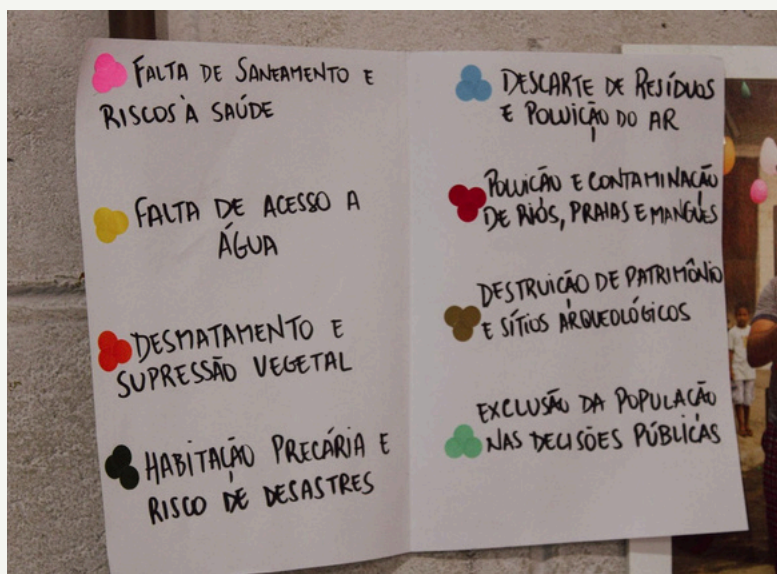 FALTA DE SANEAMENTO E
RISCOS À SAÚDE
FALTA DE ACESSO A
ÁGUA
DESMATAMENTO E
SUPRESSÃO VEGETAL
HABITAÇÃO PRECÁRIA E
RISCO DE DESASTRES
DESCARTE DE RESÍDUOS
E POLUIÇÃO DO AR
POLUIÇÃO E CONTAMINAÇÃO
DE RIOS, PRAIAS E MANGUES
DESTRUIÇÃO DE PATRIMÔNIO
E SÍTIOS ARQUEOLÓGICOS
EXCLUSÃO DA POPULAÇÃO
NAS DECISÕES PÚBLICAS